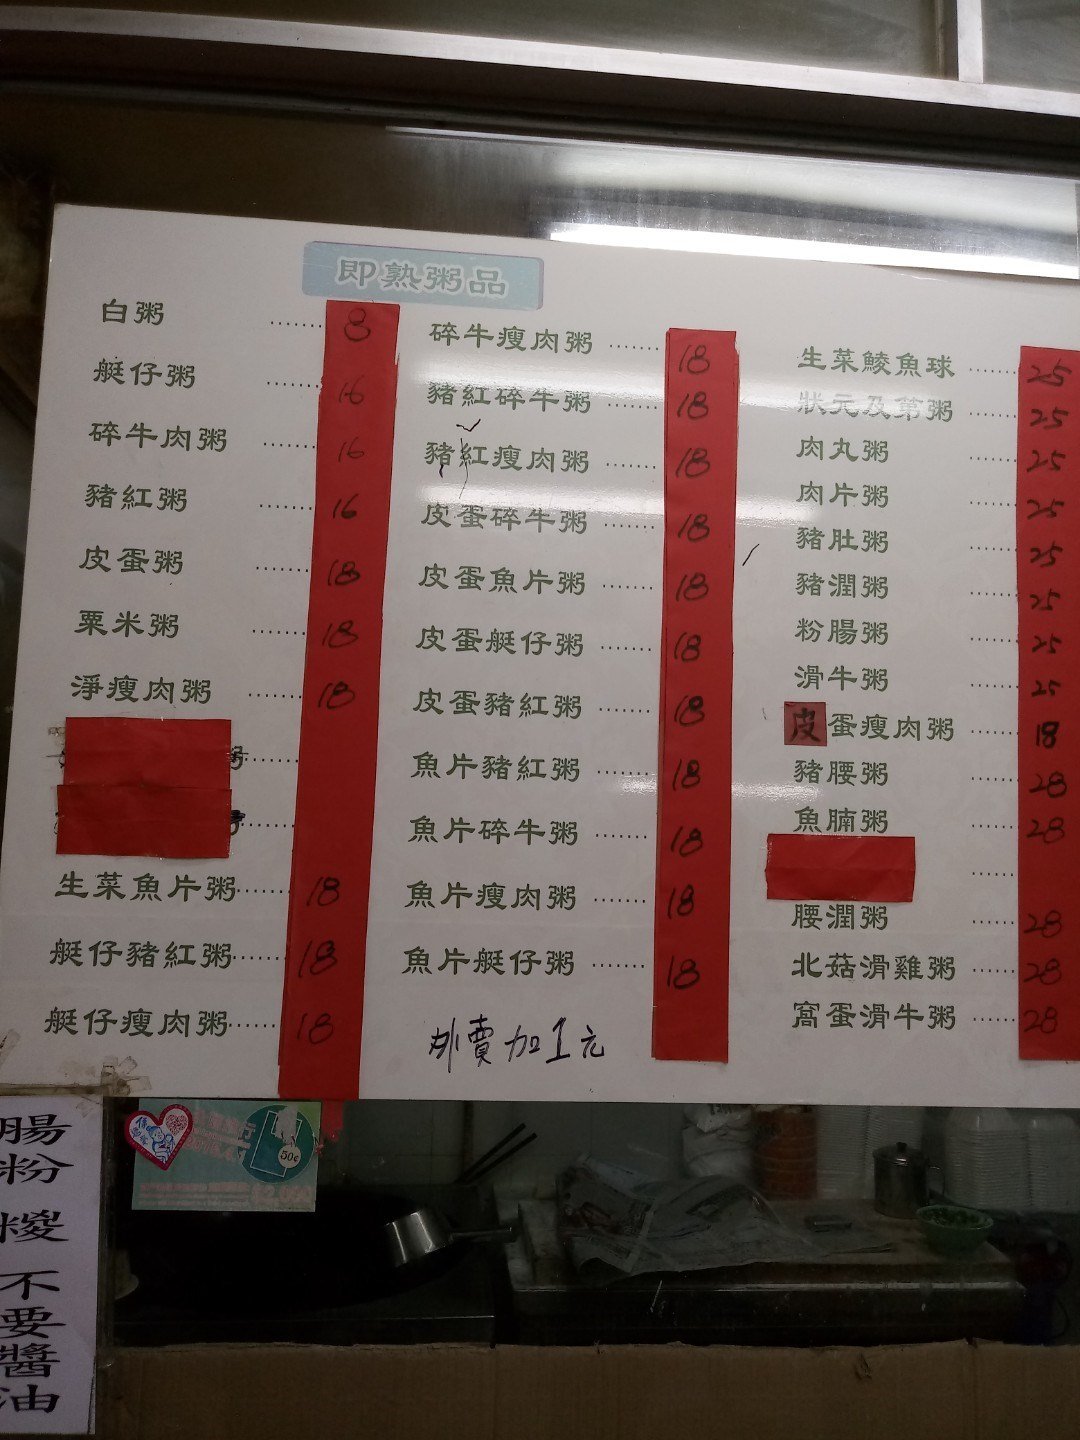 即熟粥品
白粥 ...... 8
艇仔粥 ...... 16
碎牛肉粥 ...... 16
豬紅粥 ...... 16
皮蛋粥 ...... 18
粟米粥 ...... 18
淨瘦肉粥 ...... 18
粥 ......
......
生菜魚片粥 ...... 18
艇仔豬紅粥 ...... 18
艇仔瘦肉粥 ...... 18
碎牛瘦肉粥 ...... 18
豬紅碎牛粥 ...... 18
豬紅瘦肉粥 ...... 18
皮蛋碎牛粥 ...... 18
皮蛋魚片粥 ...... 18
皮蛋艇仔粥 ...... 18
皮蛋豬紅粥 ...... 18
魚片豬紅粥 ...... 18
魚片碎牛粥 ...... 18
魚片瘦肉粥 ...... 18
魚片艇仔粥 ...... 18
外賣加1元
生菜鯪魚球 ...... 25
狀元及第粥 ...... 25
肉丸粥 ...... 25
肉片粥 ...... 25
豬肚粥 ...... 25
豬潤粥 ...... 25
粉腸粥 ...... 25
滑牛粥 ...... 25
皮蛋瘦肉粥 ...... 18
豬腰粥 ...... 28
魚腩粥 ...... 28
......
腰潤粥 ...... 28
北菇滑雞粥 ...... 28
窩蛋滑牛粥 ...... 28
腸粉
糉
不要醬油
50¢
$2,000